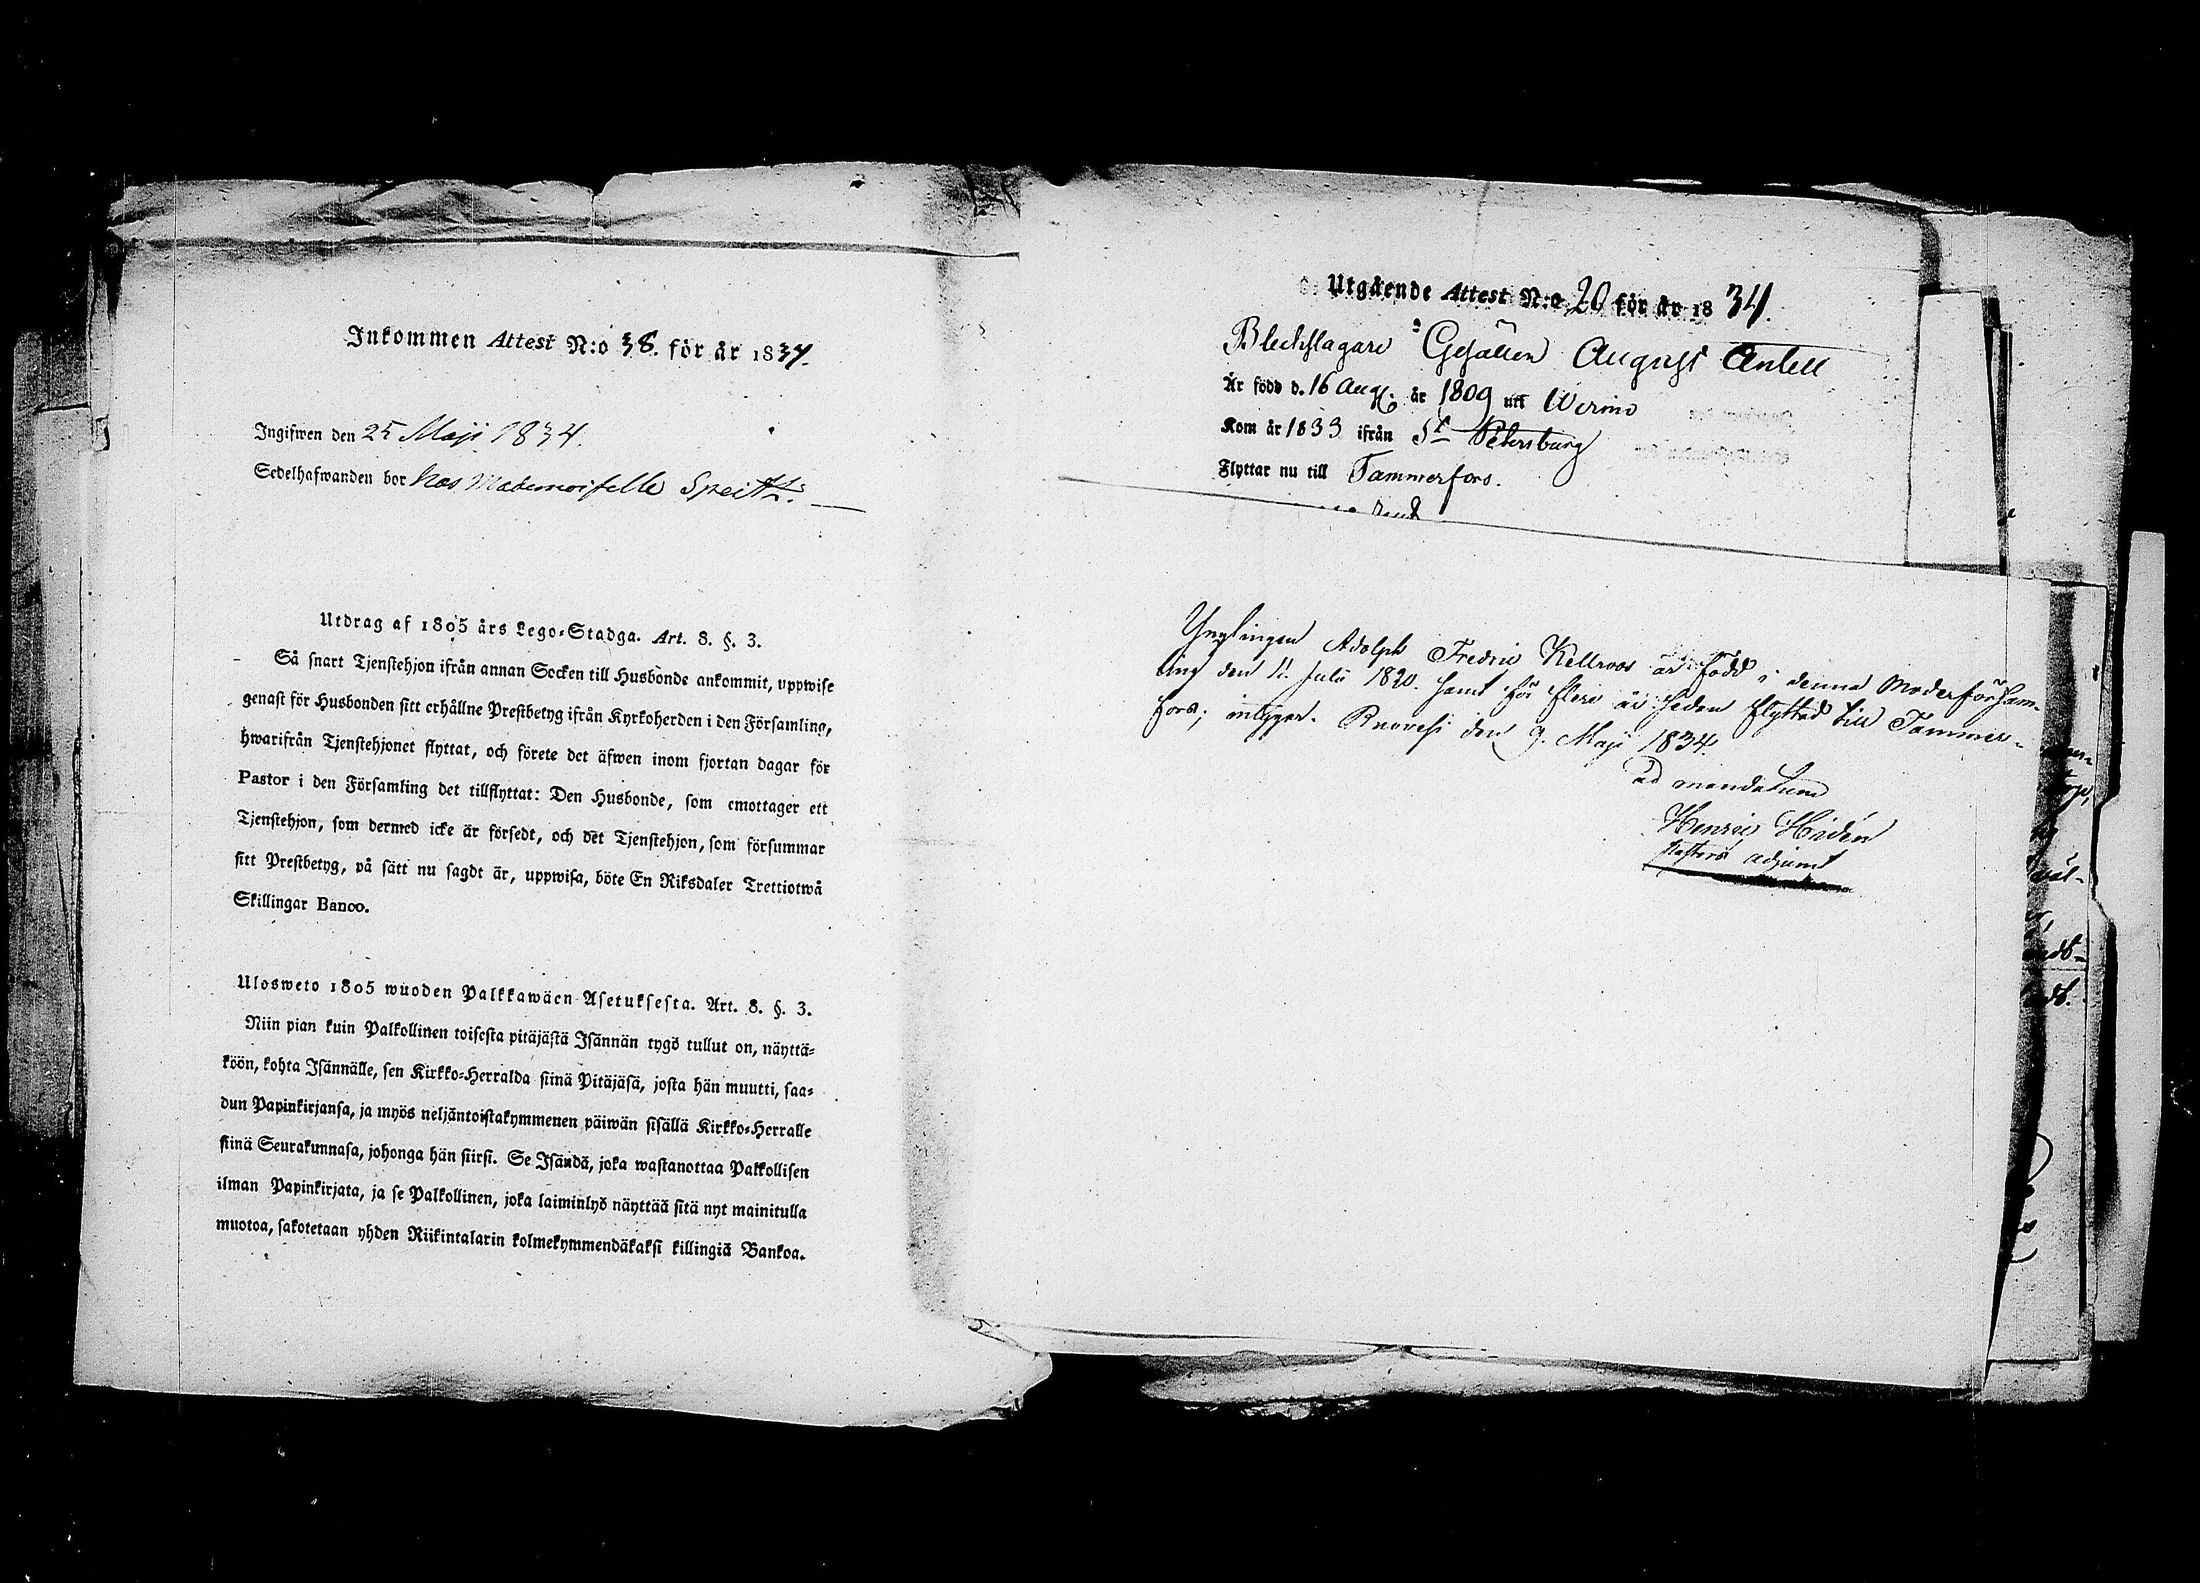 Inkommen Attest N:o 38. för år 1834.
Ingifwen den 25 Maji 1834.
Sedelhafwanden bor hos Mademoiselle Speitz.
Utdrag af 1805 års Lego-Stadga. Art. 8. §. 3.
Så snart Tjenstehjon ifrån annan Socken till Husbonde ankommit, uppwise
genast för Husbonden sitt erhållne Prestbetyg ifrån Kyrkoherden i den Församling,
hwarifrån Tjenstehjonet flyttat, och förete det äfwen inom fjortan dagar för
Pastor i den Församling det tillflyttat: Den Husbonde, som emottager ett
Tjenstehjon, som dermed icke är försedt, och det Tjenstehjon, som försummar
sitt Prestbetyg, på sätt nu sagdt är, uppwisa, böte En Riksdaler Trettiotwå
Skillingar Banco.
Ulosweto 1805 wuoden Palkkawäen Asetuksesta. Art. 8. §. 3.
Niin pian kuin Palkollinen toisesta pitäjästä Isännän tygö tullut on, näyttä-
köön, kohta Isännälle, sen Kirkko-Herralda siinä Pitäjäsä, josta hän muutti, saa-
dun Papinkirjansa, ja myös neljäntoistakymmenen päiwän sisällä Kirkko-Herralle
siinä Seurakunnasa, johonga hän siirsi. Se Isändä, joka wastanottaa Palkollisen
ilman Papinkirjata, ja se Palkollinen, joka laiminlyö näyttää sitä nyt mainitulla
muotoa, sakotetaan yhden Riikintalarin kolmekymmendäkaksi killingiä Bankoa.
Utgående Attest N:o 20 för år 1834.
Bleckslagare Gesällen August Antell
Är född d. 16 Aug. år 1809 uti Wirmo
Kom år 1833 ifrån St Petersburg
Flyttar nu till Tammerfors.
Ynglingen Adolph Fredric Kellroos är född i denna Moderförsam-
ling den 11. Julii 1820. samt för flere år sedan flyttad till Tammer-
fors; intygar. Ruovesi den 9. Maji 1834.
ad mandatum
Henric Hidén
Pastors adjunct